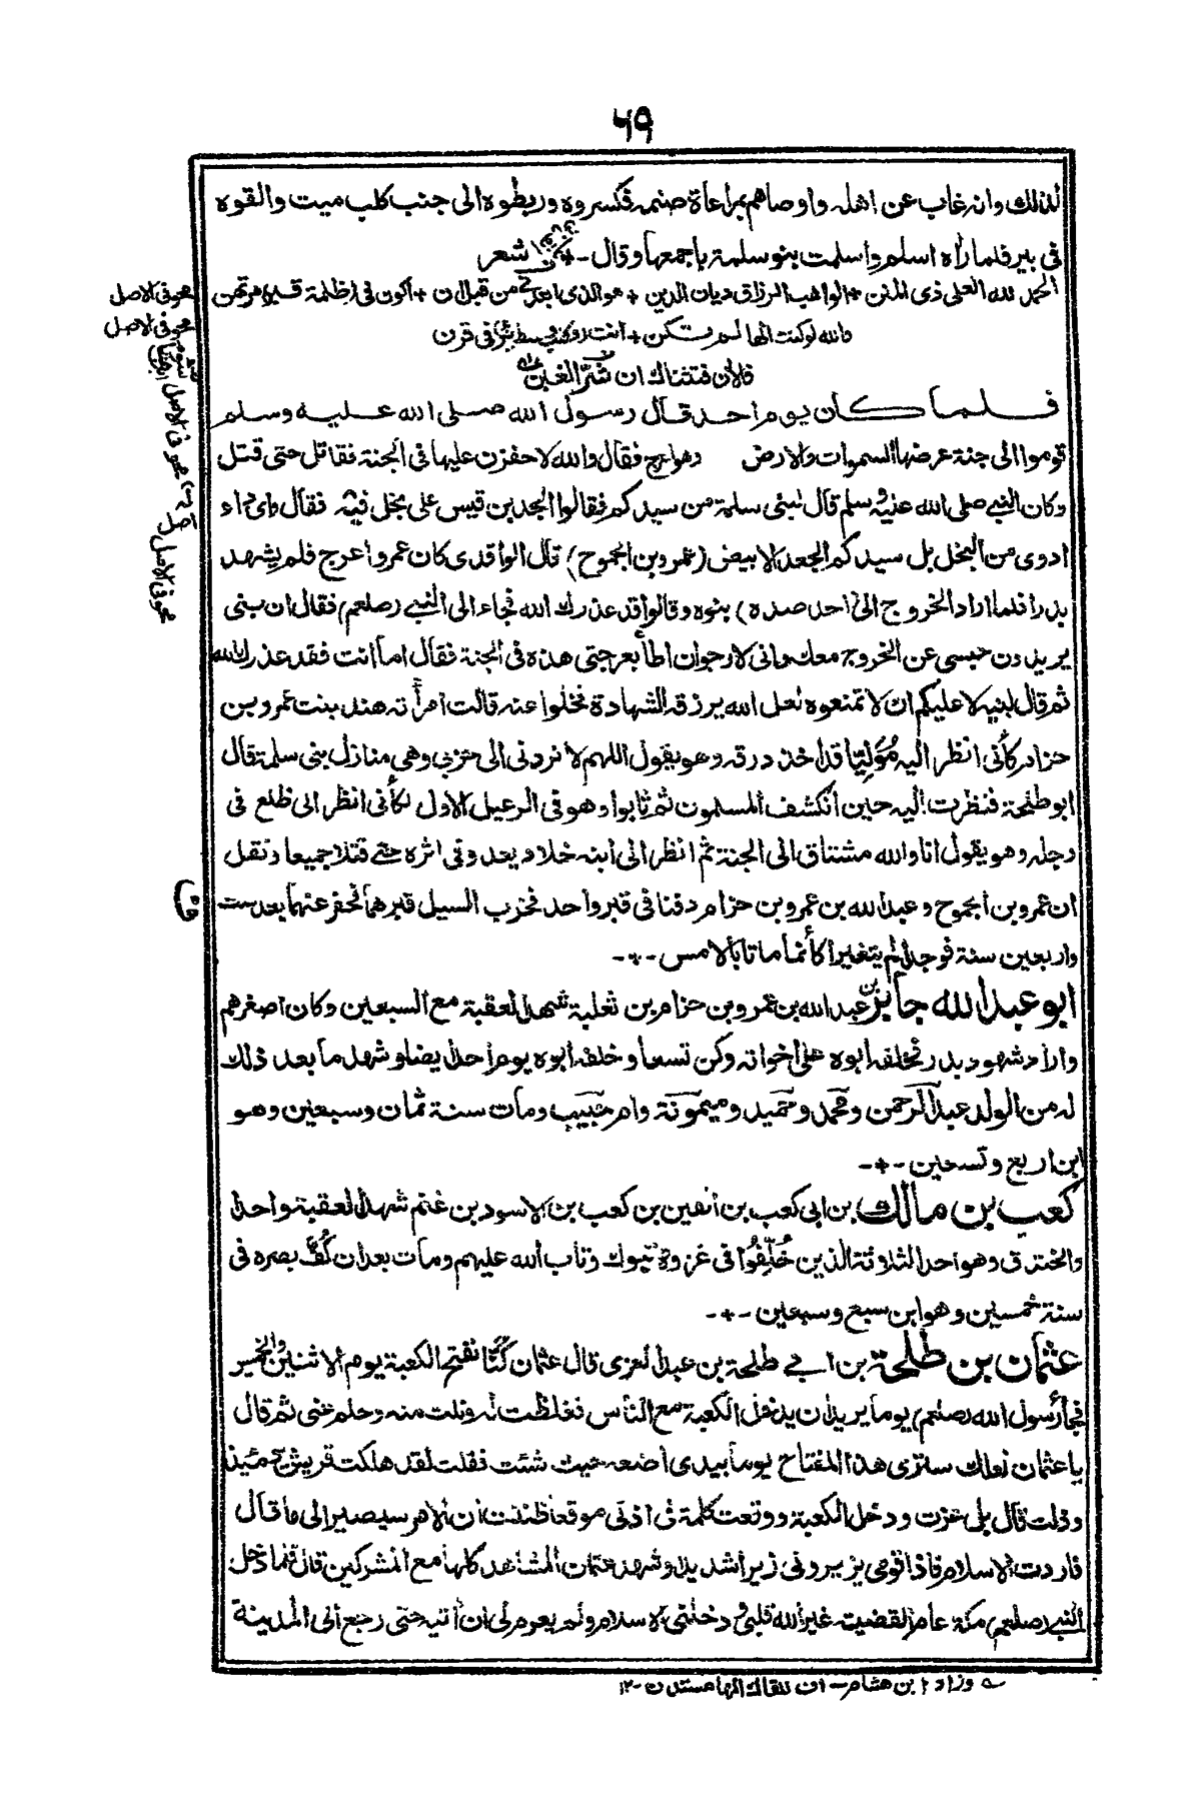 ٦٩
لذلك وانه غاب عن اهله واوصاهم بمراعاة صنمه فكسروه وربطوه الى جنب كلب ميت والقوه
فى بير فلما راه اسلم واسلمت بنو سلمة باجمعها وقال - شعر
الحمد لله العلى ذى المنن + الواهب الرزاق ديان الدين + هو الذى من قبل ان + اكون فى ظلمة قبر مرتهن
والله لو كنت الها لم تكن + انت وكلب وسط بئر فى قرن
فالان فتشناك ان شر الغبن
فلما كان يوم احد قال رسول الله صلى الله عليه وسلم
قوموا الى جنة عرضها السموات والارض وهو اعرج فقال والله لاحفزن عليها فى الجنة فقاتل حتى قتل
وكان النبى صلى الله عليه وسلم قال لبنى سلمة من سيدكم فقالوا الجد بن قيس على بخل فيه فقال واى داء
ادوى من البخل بل سيدكم الجعد الابيض (عمرو بن الجموح) قال الواقدى كان عمرو اعرج فلم يشهد
بدرا فلما اراد الخروج الى (احد صده) بنوه وقالوا قد عذرك الله فجاء الى النبى (صلعم) فقال ان بنى
يريدون حبسى عن الخروج معك وانى لارجوان اطأ بعرجتى هذه فى الجنة فقال اما انت فقد عذرك الله
ثم قال لبنيه لا عليكم ان لا تمنعوه لعل الله يرزقه الشهادة فخلوا عنه قالت امرأته هند بنت عمرو بن
حزام كأنى انظر اليه مُوَلِّيًا قد اخذ درقه وهو يقول اللهم لا تردنى الى خزبى وهى منازل بنى سلمة قال
ابو طلحة فنظرت اليه حين انكشف المسلمون ثم ثابوا وهو فى الرعيل الاول لكأنى انظر الى ظلع فى
رجله وهو يقول انا والله مشتاق الى الجنة ثم انظر الى ابنه خلاد يعد وفى اثره حتى قتلا جميعا ونقل
ان عمرو بن الجموح وعبد الله بن عمرو بن حزام دفنا فى قبر واحد فخرب السيل قبرهما فحفر عنهما بعد ست
واربعين سنة فوجدا لم يتغيرا كأنما ماتا بالامس -+-
ابو عبد الله جابر بن عبد الله بن عمرو بن حزام بن ثعلبة شهد العقبة مع السبعين وكان اصغرهم
واراد شهود بدر فخلفه ابوه على اخواته وكن تسعا وخلفه ابوه يوم احد ايضا وشهد ما بعد ذلك
له من الولد عبد الرحمن ومحمد وحميد وميمونة وام حبيب ومات سنة ثمان وسبعين وهو
ابن اربع وتسعين -+-
كعب بن مالك بن ابى كعب بن القين بن كعب بن الاسود بن غنم شهد العقبة واحدا
والخندق وهو احد الثلاثة الذين خُلِّفُوا فى غزوة تبوك وتاب الله عليهم ومات بعد ان كُفَّ بصره فى
سنة خمسين وهو ابن سبع وسبعين -+-
عثمان بن طلحة بن ابى طلحة بن عبد العزى قال عثمان كُنّا نفتح الكعبة يوم الاثنين والخميس
فجأ رسول الله (صلعم) يوما يريد ان يدخل الكعبة مع الناس فغلظت له ونلت منه وحلم عنى ثم قال
يا عثمان لعلك سترى هذا المفتاح يوما بيدى اضعه حيث شئت فقلت لقد هلكت قريش يومئذ
وذلت قال بلى عزت ودخل الكعبة ووقعت كلمة فى اذنى موقعا ظننت ان الامر سيصير الى ما قال
فاردت الاسلام فاذا قومى يزبرونى زبرا شديدا وشهد عثمان المشاهد كلها مع المشركين قال فلما دخل
النبى (صلعم) مكة عام القضيته غير الله قلبى ودخلنى الاسلام ولم يعزم لى ان اتيه حتى رجع الى المدينة
وزاد ابن هشام - اف للقاك الها مستدن - ١٢
محو فى الاصل
محو فى الاصل
محو فى الاصل
محو فى الاصل